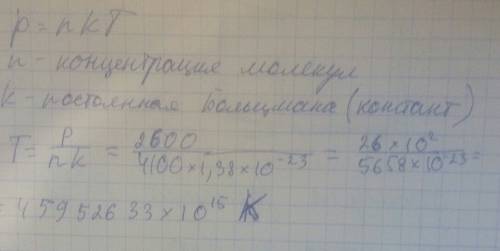 p = nkT
n - концентрация молекул
k - постоянная Больцмана (констант)
T = P/nk = 2600/4100×1,38×10⁻²³ = 26×10²/5658×10⁻²³ =
= 45952633×10¹⁵ K